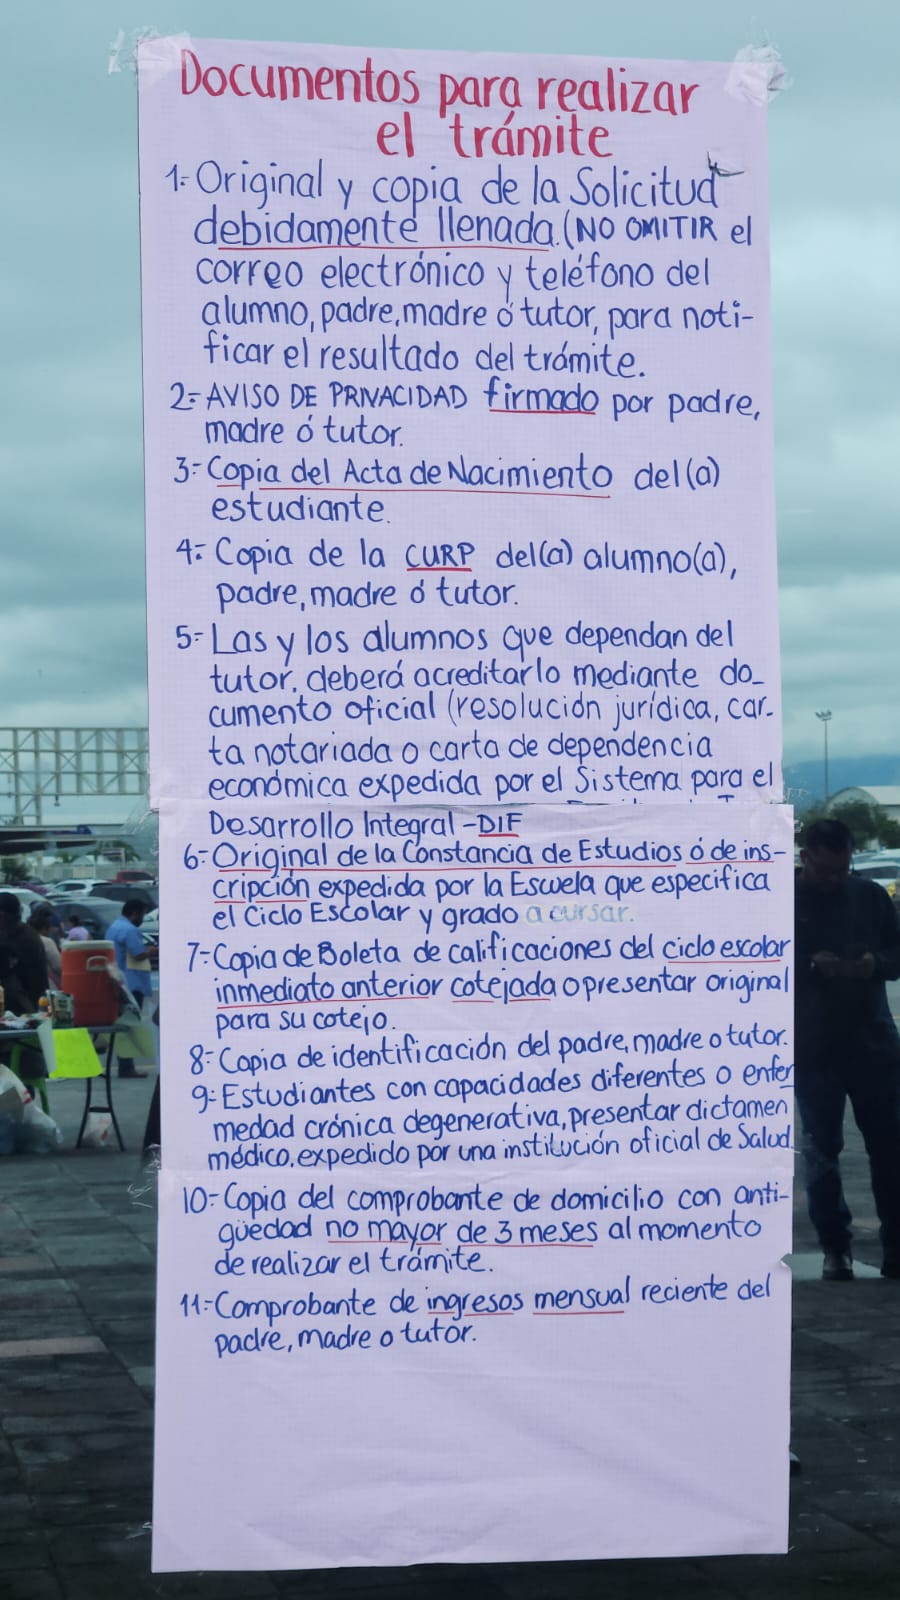 Documentos para realizar
el trámite
1.- Original y copia de la Solicitud
debidamente llenada. (NO OMITIR el
correo electrónico y teléfono del
alumno, padre, madre ó tutor, para noti-
ficar el resultado del trámite.
2.- AVISO DE PRIVACIDAD firmado por padre,
madre ó tutor.
3.- Copia del Acta de Nacimiento del(a)
estudiante.
4.- Copia de la CURP del(a) alumno(a),
padre, madre ó tutor.
5.- Las y los alumnos que dependan del
tutor, deberá acreditarlo mediante do-
cumento oficial (resolución jurídica, car-
ta notariada o carta de dependencia
económica expedida por el Sistema para el
Desarrollo Integral - DIF
6.- Original de la Constancia de Estudios ó de ins-
cripción expedida por la Escuela que especifica
el Ciclo Escolar y grado a cursar.
7.- Copia de Boleta de calificaciones del ciclo escolar
inmediato anterior cotejada o presentar original
para su cotejo.
8.- Copia de identificación del padre, madre o tutor.
9.- Estudiantes con capacidades diferentes o enfer
medad crónica degenerativa, presentar dictamen
médico, expedido por una institución oficial de Salud.
10.- Copia del comprobante de domicilio con anti-
güedad no mayor de 3 meses al momento
de realizar el trámite.
11.- Comprobante de ingresos mensual reciente del
padre, madre o tutor.